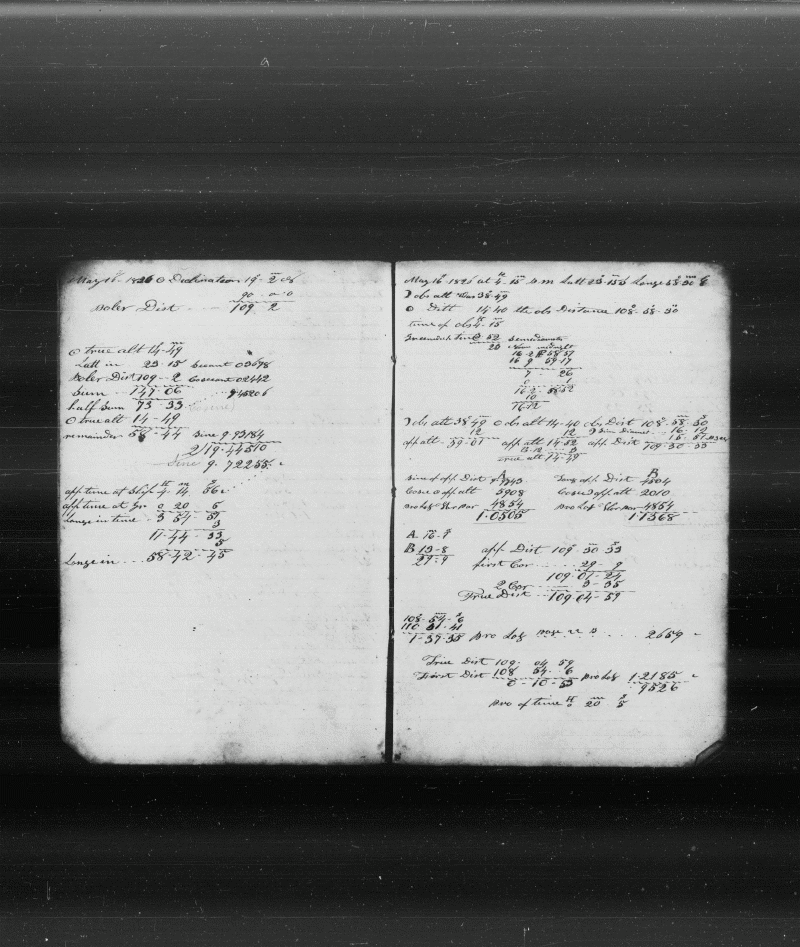 May 16 - 1826 ☉ Declination 19 - 2
90 - 0 - 0
Poler Dist 109 2
☉ true alt 14-49
Latt in 23-15 Secant 03678
Poler Dist 109 - 2 Cosecant 02442
Sum 147-06 9.45206
half Sum 73-33
☉ true alt 14-49
remainder 58-44 Sine 9.93184
2/19.44510
Sine 9.72255
app time at Ship 4 14 56
app time at Gr 0 20 5
Longe in time 3 54 51
3
11-44 33
5
Longe in 58-42-45
May 16 1826 at 4-15 P.m Latt 23-15 Longe 58-30
☽ obs alt was 38-49
☉ Ditt 14 40 the obs Distance 108-58-30
time of obs 4-15
Greenwich time Semediameter
23 Noon midnight
16-2 58-57
16 9 59-17
7 26
16-2 58-52
10
16-12
☽ obs alt 38-49 ☉ obs alt 14-40 obs Dist 108-58-30
12 12 16-12
app alt 39-01 app alt 14-52 app Dist 109-30-33
true alt 14-49
A B
Sine of app Dist 9743 app Dist 4804
app alt 5908 app alt 2010
pro log 4854 Pro Log 4854
1.0505 1.1368
A 16-1
B 13-8 app Dist 109 30 33
29-9 first Cor 29-9
109-01-24
2 Cor 3-35
True Dist 109-04-59
108-54-6
110 31-41
1-37-35 Pro Log 2659
True Dist 109: 04 59
First Dist 108 54 6
0-10-53 Pro Log 1.2185
9526
Pro of time 0 20 5